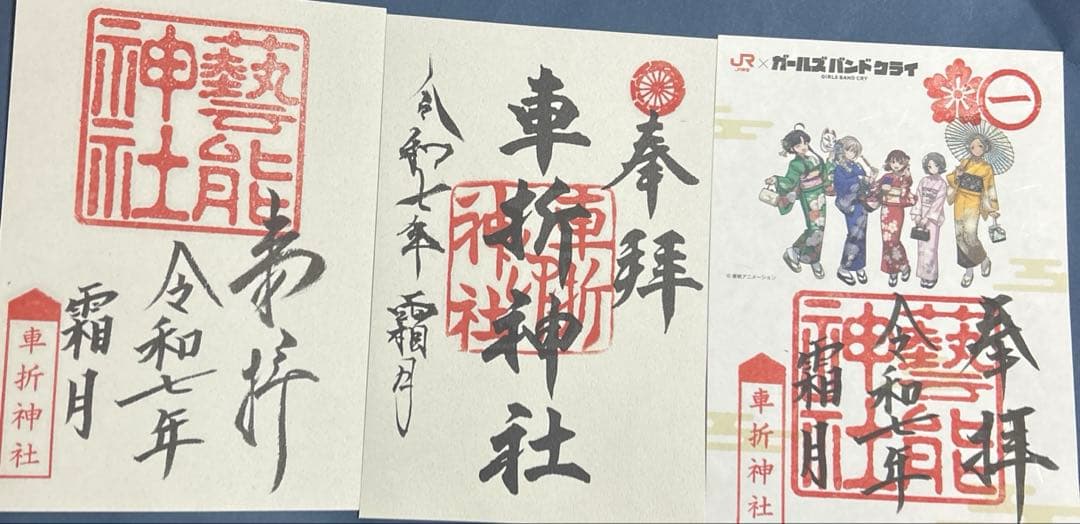 藝能
神社
奉拝
令和七年
霜月
車折神社
奉拝
車折神社
車折
神社
令和七年
霜月
JR
JR東海
×
ガールズバンドクライ
GIRLS BAND CRY
一
©東映アニメーション
藝能
神社
奉拝
令和七年
霜月
車折神社